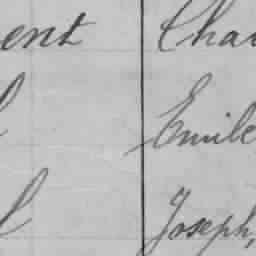 ent Cha
l Emile
l Joseph,